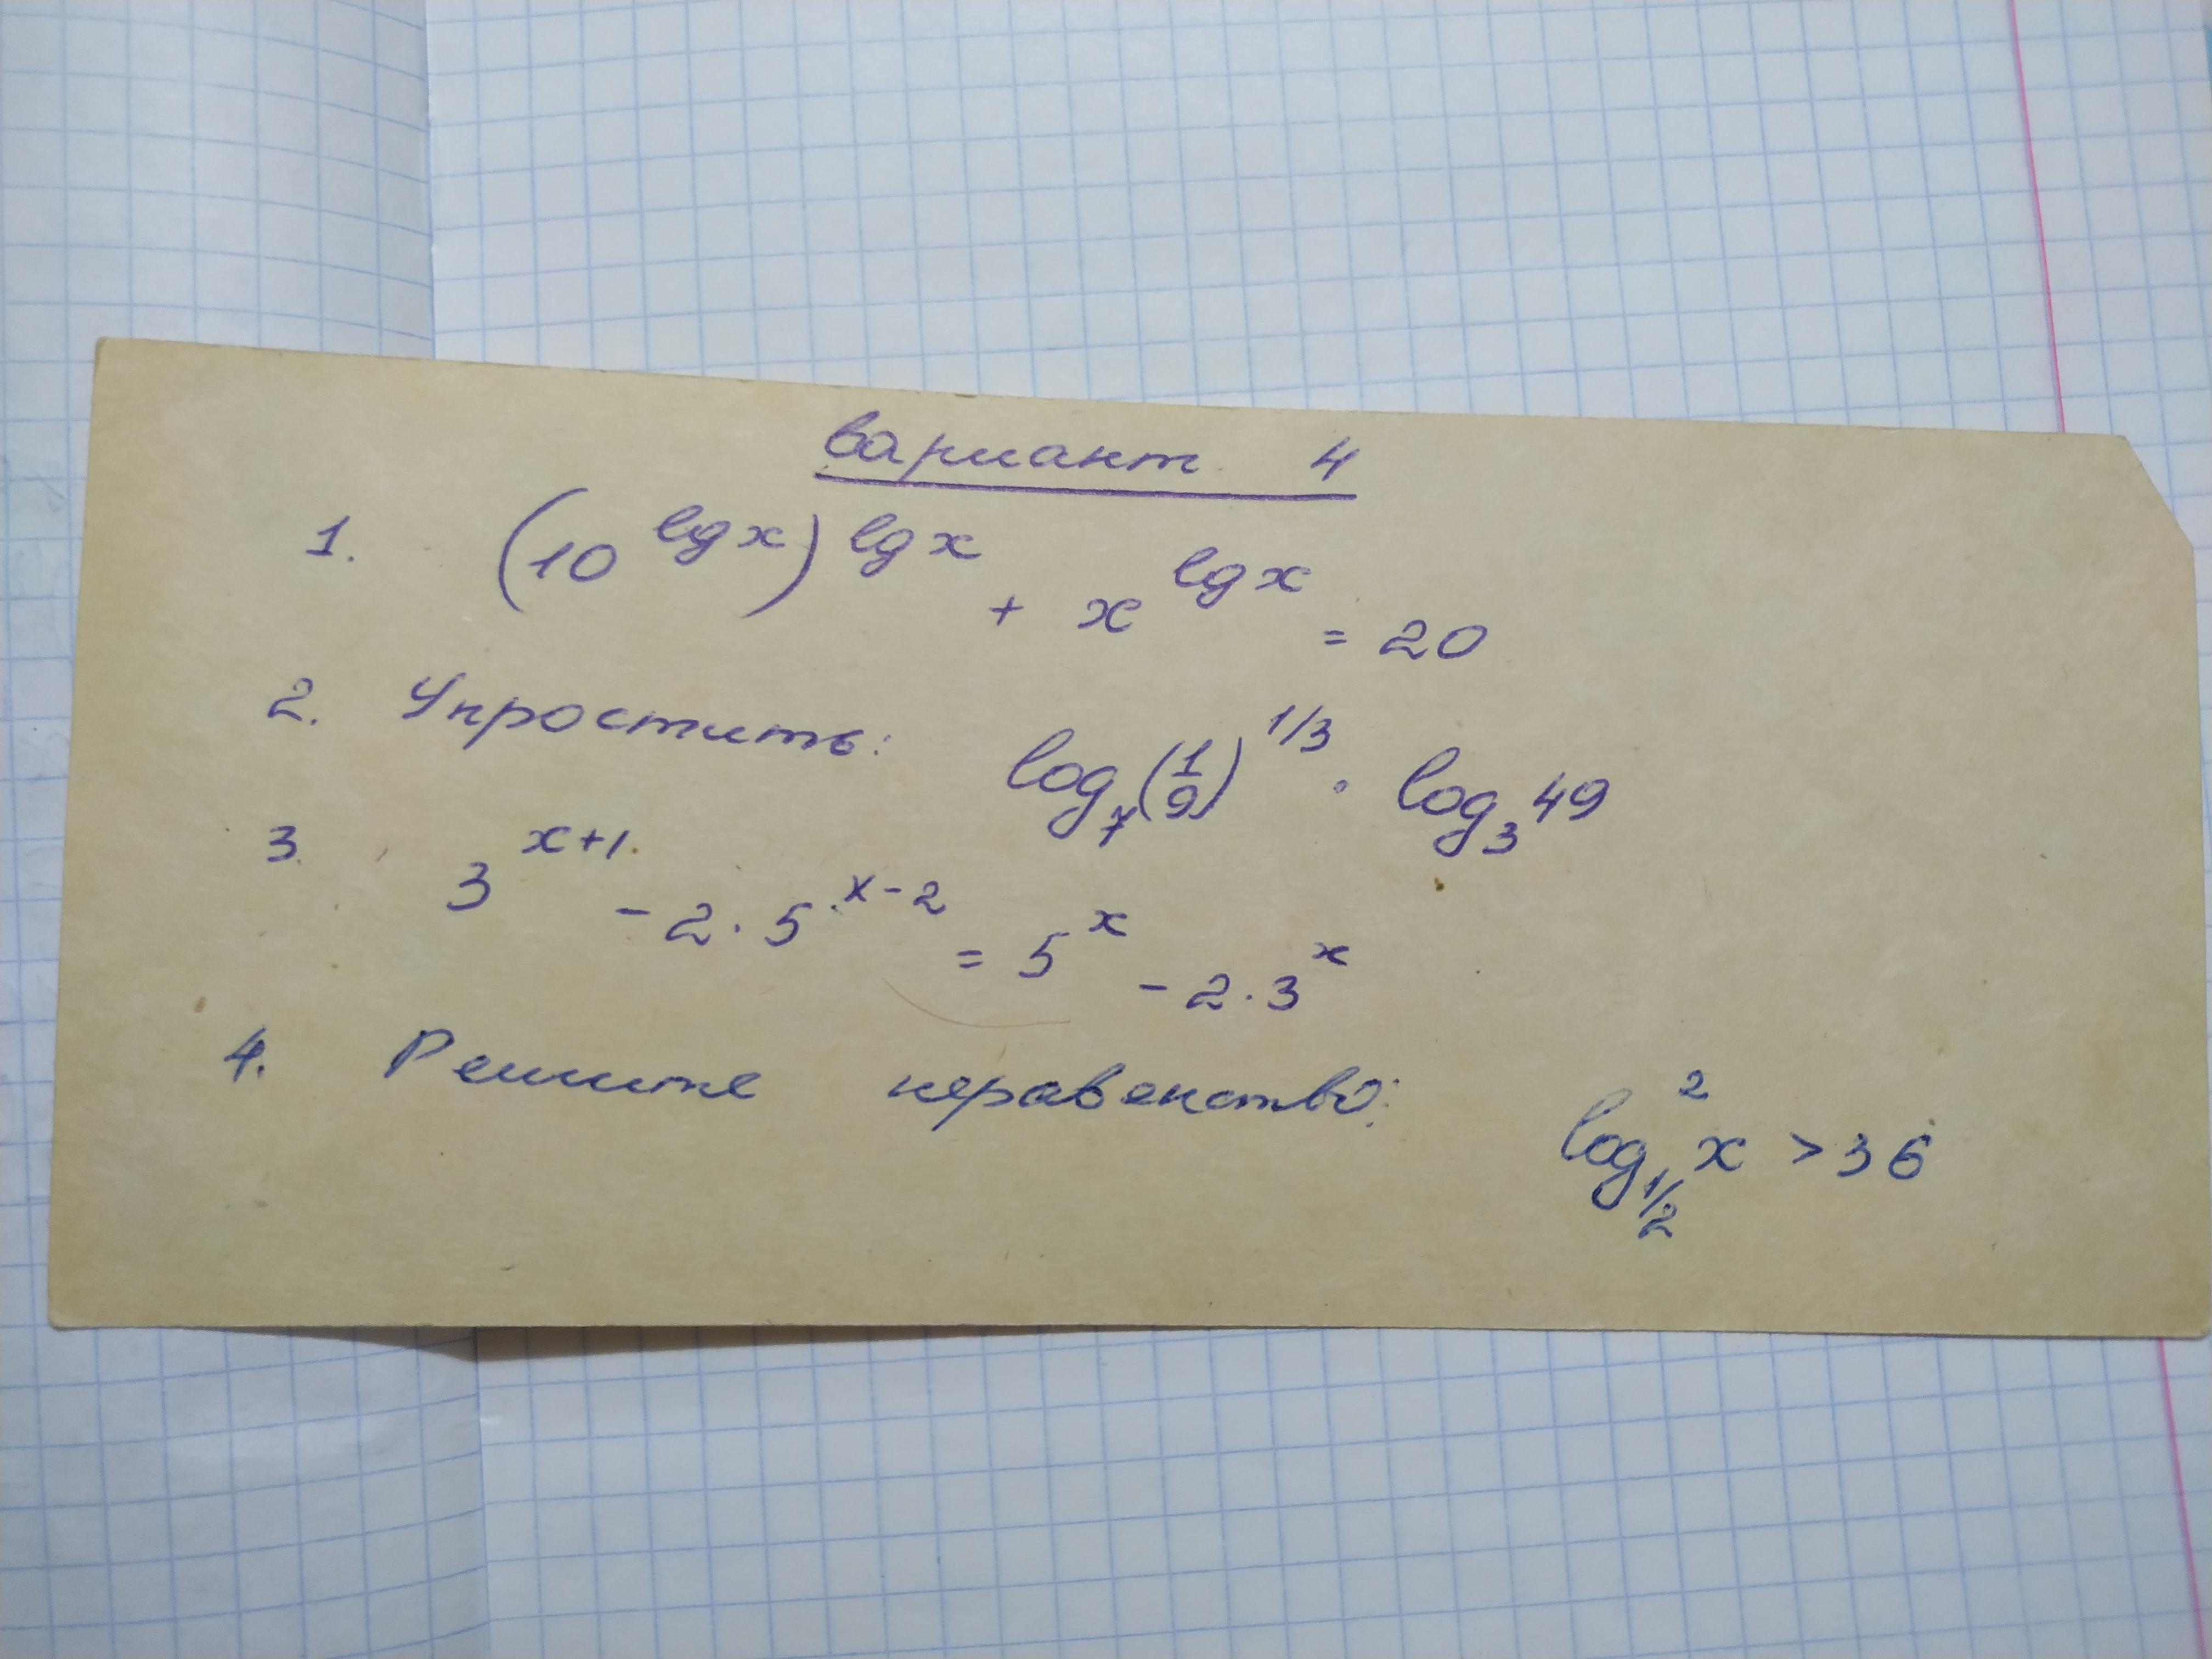 вариант 4
1. (10^{lg x})^{lg x} + x^{lg x} = 20
2. Упростить: log_7 (1/9)^{1/3} · log_3 49
3. 3^{x+1} - 2 · 5^{x-2} = 5^x - 2 · 3^x
4. Решите неравенство: log^2_{1/2} x > 36